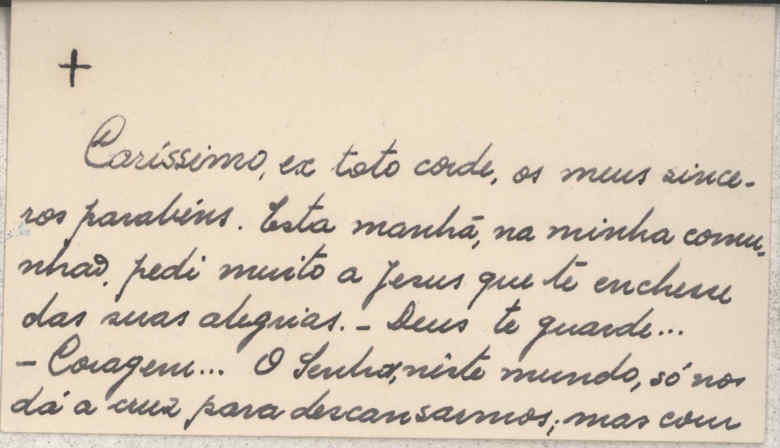 +
Caríssimo, ex toto corde, os meus since-
ros parabéns. Esta manhã, na minha comu-
nhão, pedi muito a Jesus que te enchesse
das suas alegrias. - Deus te guarde...
- Coragem... O Senhor, neste mundo, só nos
dá a cruz para descansarmos; mas com